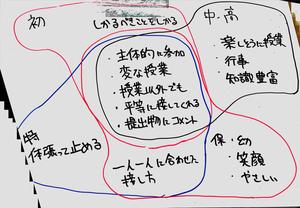 初
しかるべきことをしかる
中・高
・主体的に参加
・変な授業
・授業以外でも
・平等に接してくれる
・提出物にコメント
・楽しそうに授業
・行事
・知識豊富
特
体張って止める
一人一人に合わせた
接し方
保・幼
・笑顔
・やさしい